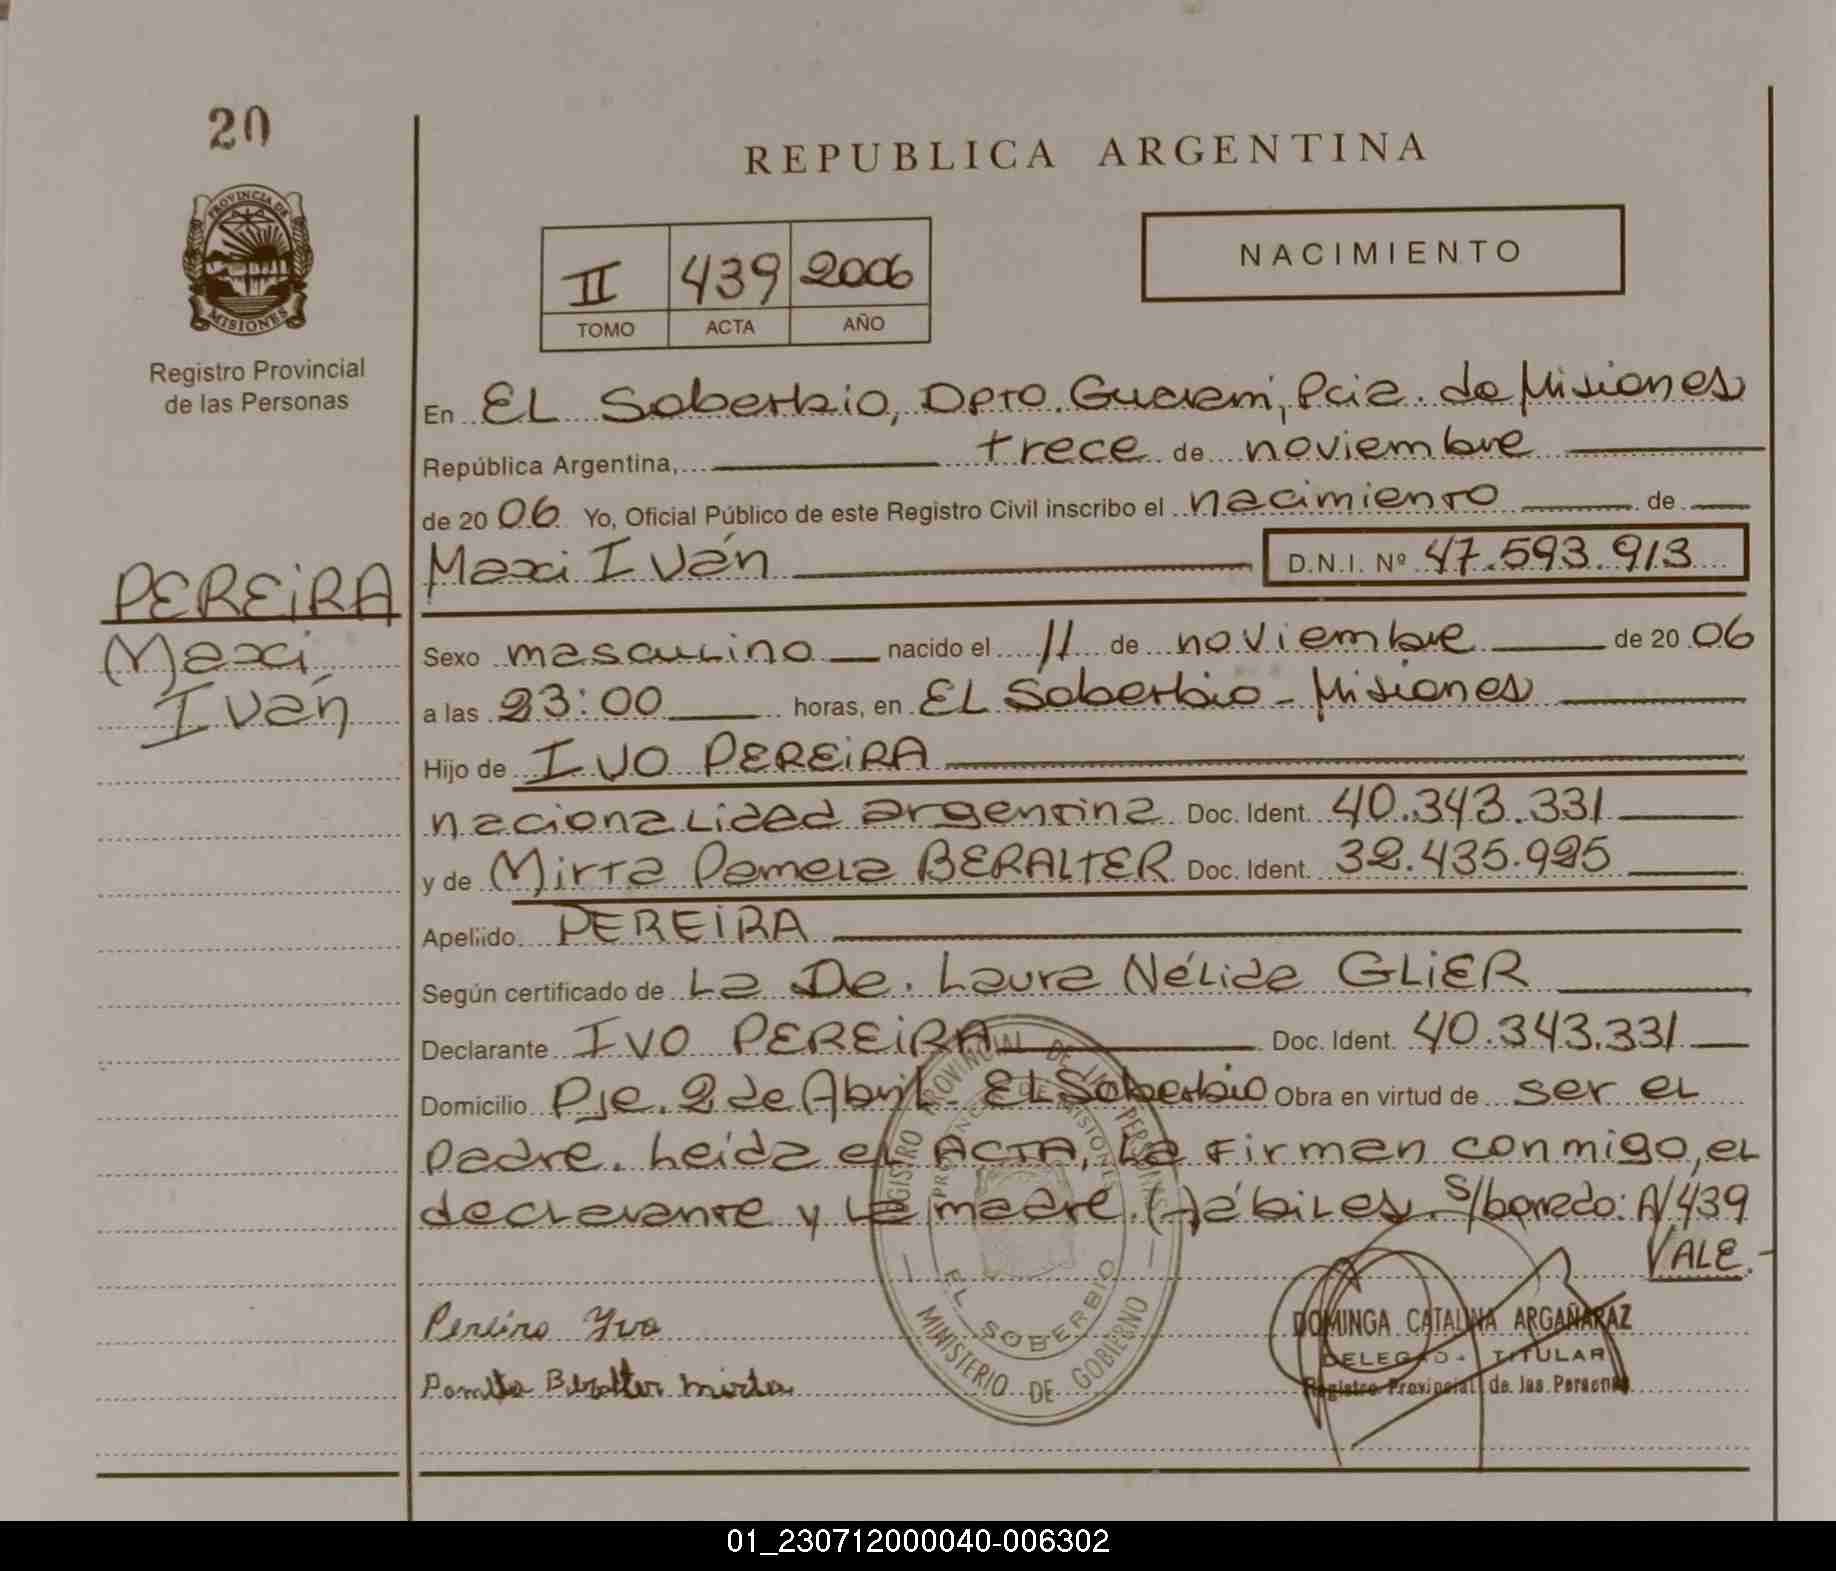 20
PROVINCIA DE
MISIONES
Registro Provincial
de las Personas
PEREIRA
Maxi
Iván
REPUBLICA ARGENTINA
II 439 2006
TOMO ACTA AÑO
NACIMIENTO
En EL Soberbio, Dpto. Guaraní, Pcia. de Misiones
República Argentina, trece de noviembre
de 2006 Yo, Oficial Público de este Registro Civil inscribo el nacimiento de
Maxi Iván D.N.I. Nº 47.593.913
Sexo masculino nacido el 11 de noviembre de 2006
a las 23:00 horas, en EL Soberbio - Misiones
Hijo de IVO PEREIRA
nacionalidad argentina Doc. Ident. 40.343.331
y de Mirta Pamela BERALTER Doc. Ident. 32.435.925
Apellido PEREIRA
Según certificado de La De. Laura Nélida GLIER
Declarante IVO PEREIRA Doc. Ident. 40.343.331
Domicilio Pje. 2 de Abril - EL Soberbio Obra en virtud de ser el
padre. Leída el ACTA, La firman conmigo, el
declarante y la madre. Hábiles. S/borrado: A/439
VALE.-
Pereira Yvo
Pamela Beralter Mirta
REGISTRO PROVINCIAL DE LAS PERSONAS
PROVINCIA DE MISIONES
EL SOBERBIO
MINISTERIO DE GOBIERNO
DOMINGA CATALINA ARGAÑARAZ
DELEGADA TITULAR
Registro Provincial de las Personas
01_230712000040-006302